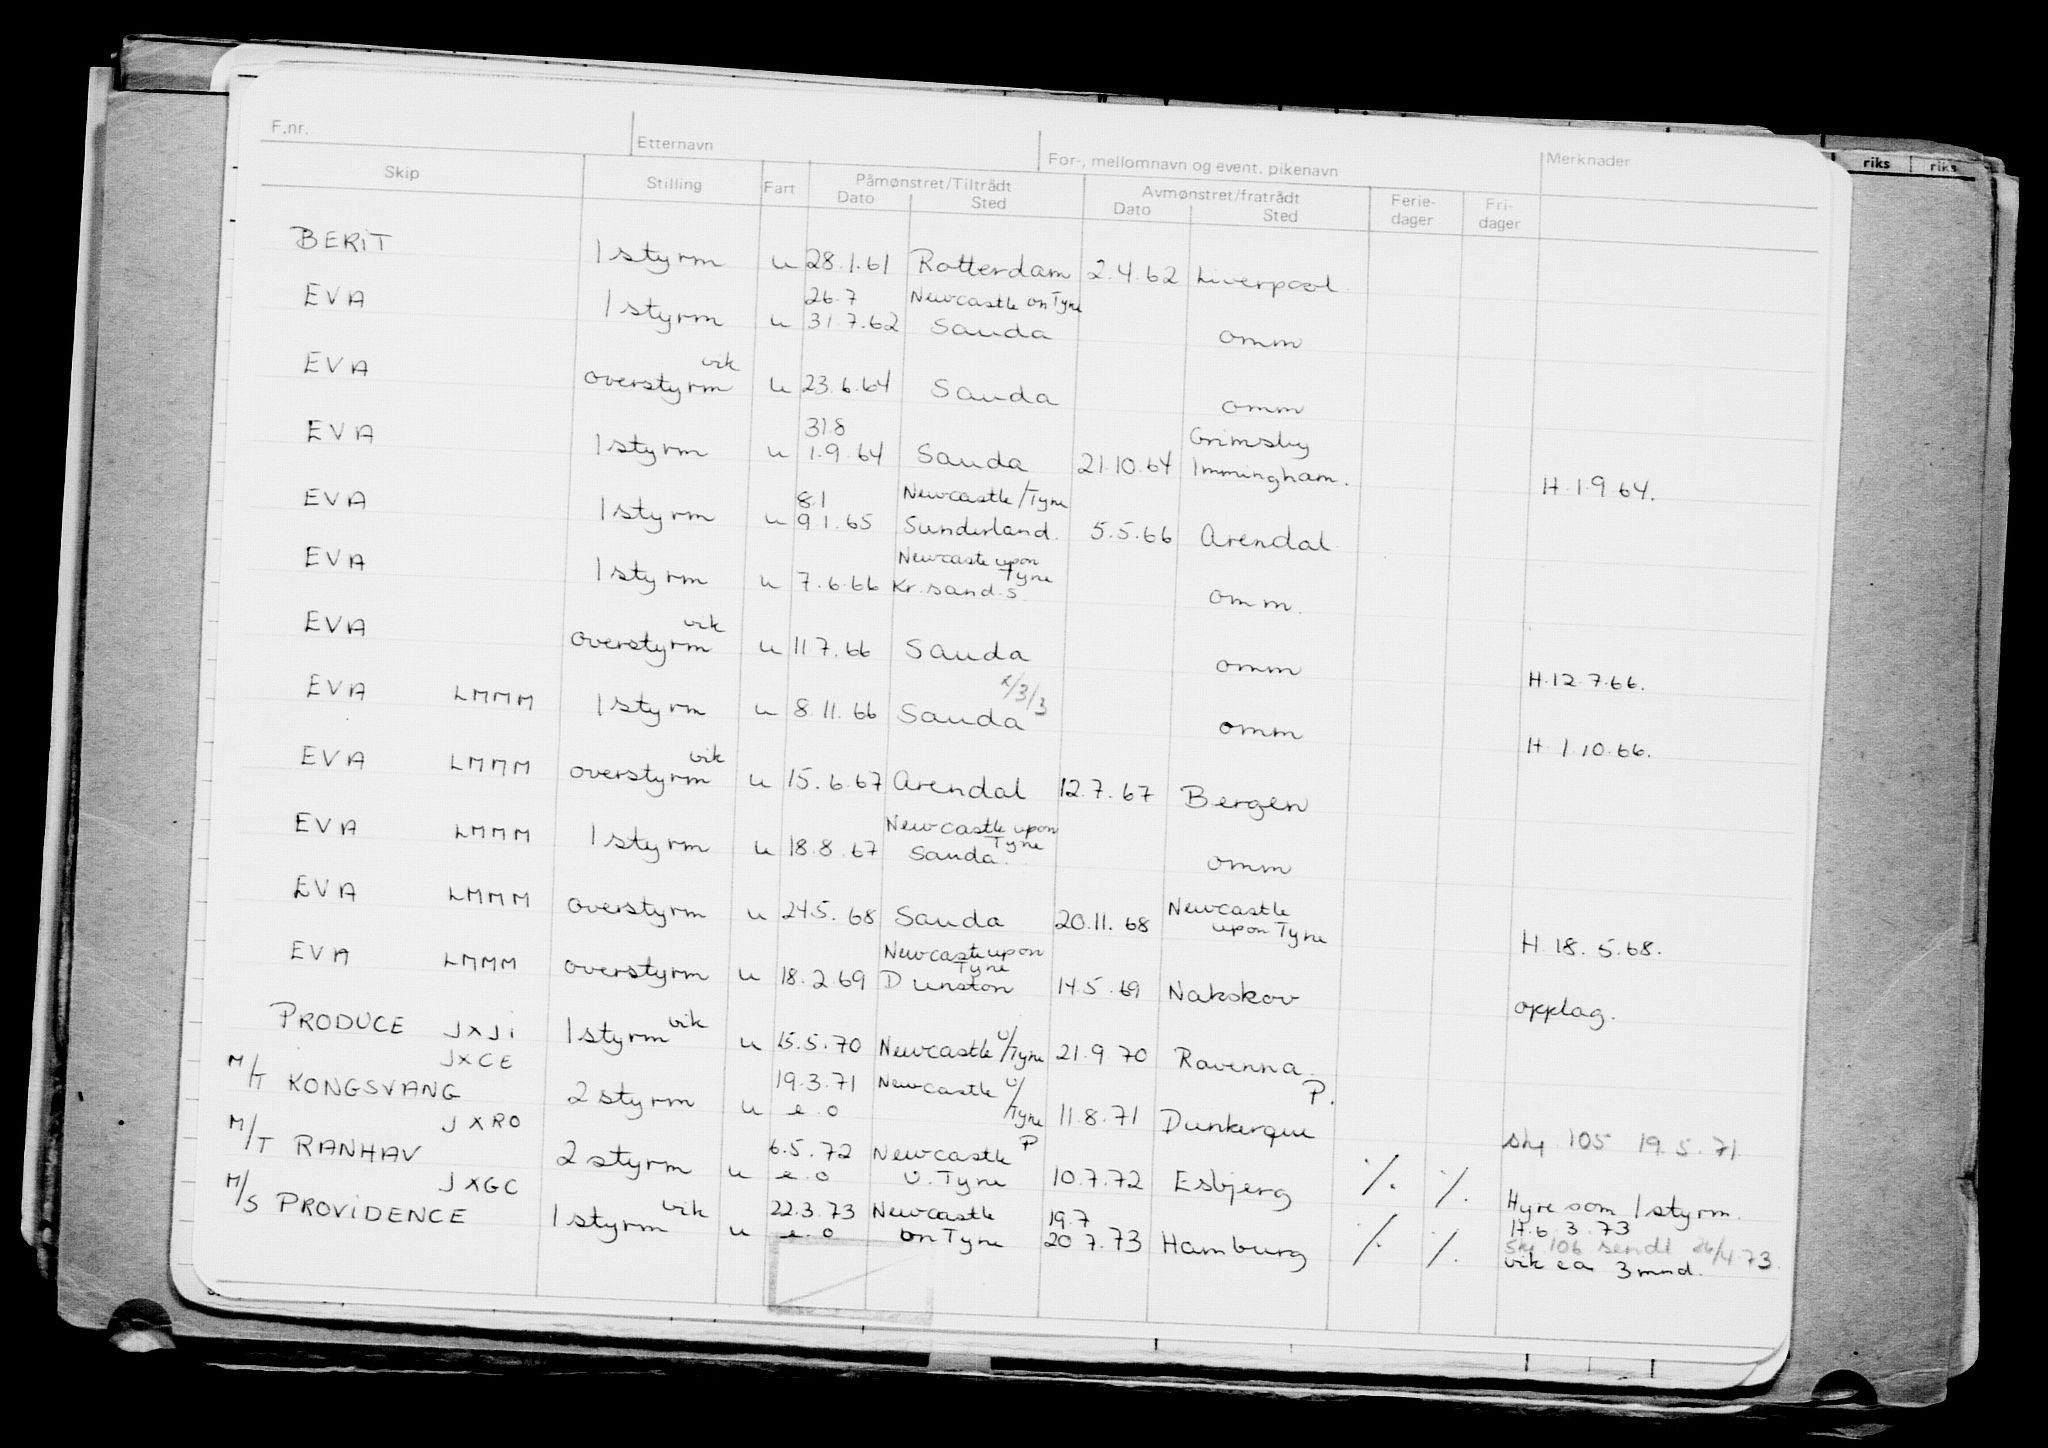 F.nr. Etternavn For-, mellomnavn og event. pikenavn Merknader
Skip Stilling Fart Påmønstret/Tiltrådt Avmønstret/fratrådt Ferie- Fri-
Dato Sted Dato Sted dager dager
riks riks
BERIT 1 styrm u 28.1.61 Rotterdam 2.4.62 Liverpool.
26.7 Newcastle on Tyne
EVA 1 styrm u 31.7.62 Sauda omm
vik
EVA overstyrm u 23.6.64 Sauda omm
31.8 Grimsby
EVA 1 styrm u 1.9.64 Sauda 21.10.64 Immingham. H.1.9.64.
8.1 Newcastle/Tyne
EVA 1 styrm u 9.1.65 Sunderland. 5.5.66 Arendal.
Newcaste upon Tyne
EVA 1 styrm u 7.6.66 Kr.sand.S omm.
vik
EVA overstyrm u 11.7.66 Sauda omm H.12.7.66.
x/3/3
EVA LMMM 1 styrm u 8.11.66 Sauda omm H.1.10.66.
vik
EVA LMMM overstyrm u 15.6.67 Arendal 12.7.67 Bergen
Newcastle upon Tyne
EVA LMMM 1 styrm u 18.8.67 Sauda. omm
EVA LMMM overstyrm u 24.5.68 Sauda 20.11.68 Newcastle upon Tyne H.18.5.68.
Newcaste upon Tyne
EVA LMMM overstyrm u 18.2.69 Dunston 14.5.69 Nakskov opplag.
PRODUCE JXJI 1 styrm vik u 15.5.70 Newcastle U/Tyne 21.9.70 Ravenna.
JXCE 19.3.71 Newcastle U/Tyne P.
M/T KONGSVANG 2 styrm u e.o 11.8.71 Dunkerque skj 105 19.5.71
JXRO 6.5.72 Newcastle P
M/T RANHAV 2 styrm u e.o U. Tyne 10.7.72 Esbjerg ·/. ·/. Hyre som 1 styrm.
JXGC vik 22.3.73 Newcastle 19.7 H.6.3.73
M/S PROVIDENCE 1 styrm u e.o on Tyne 20.7.73 Hamburg ·/. ·/. Skj 106 sendt 26/4.73.
vik ca 3 mnd.